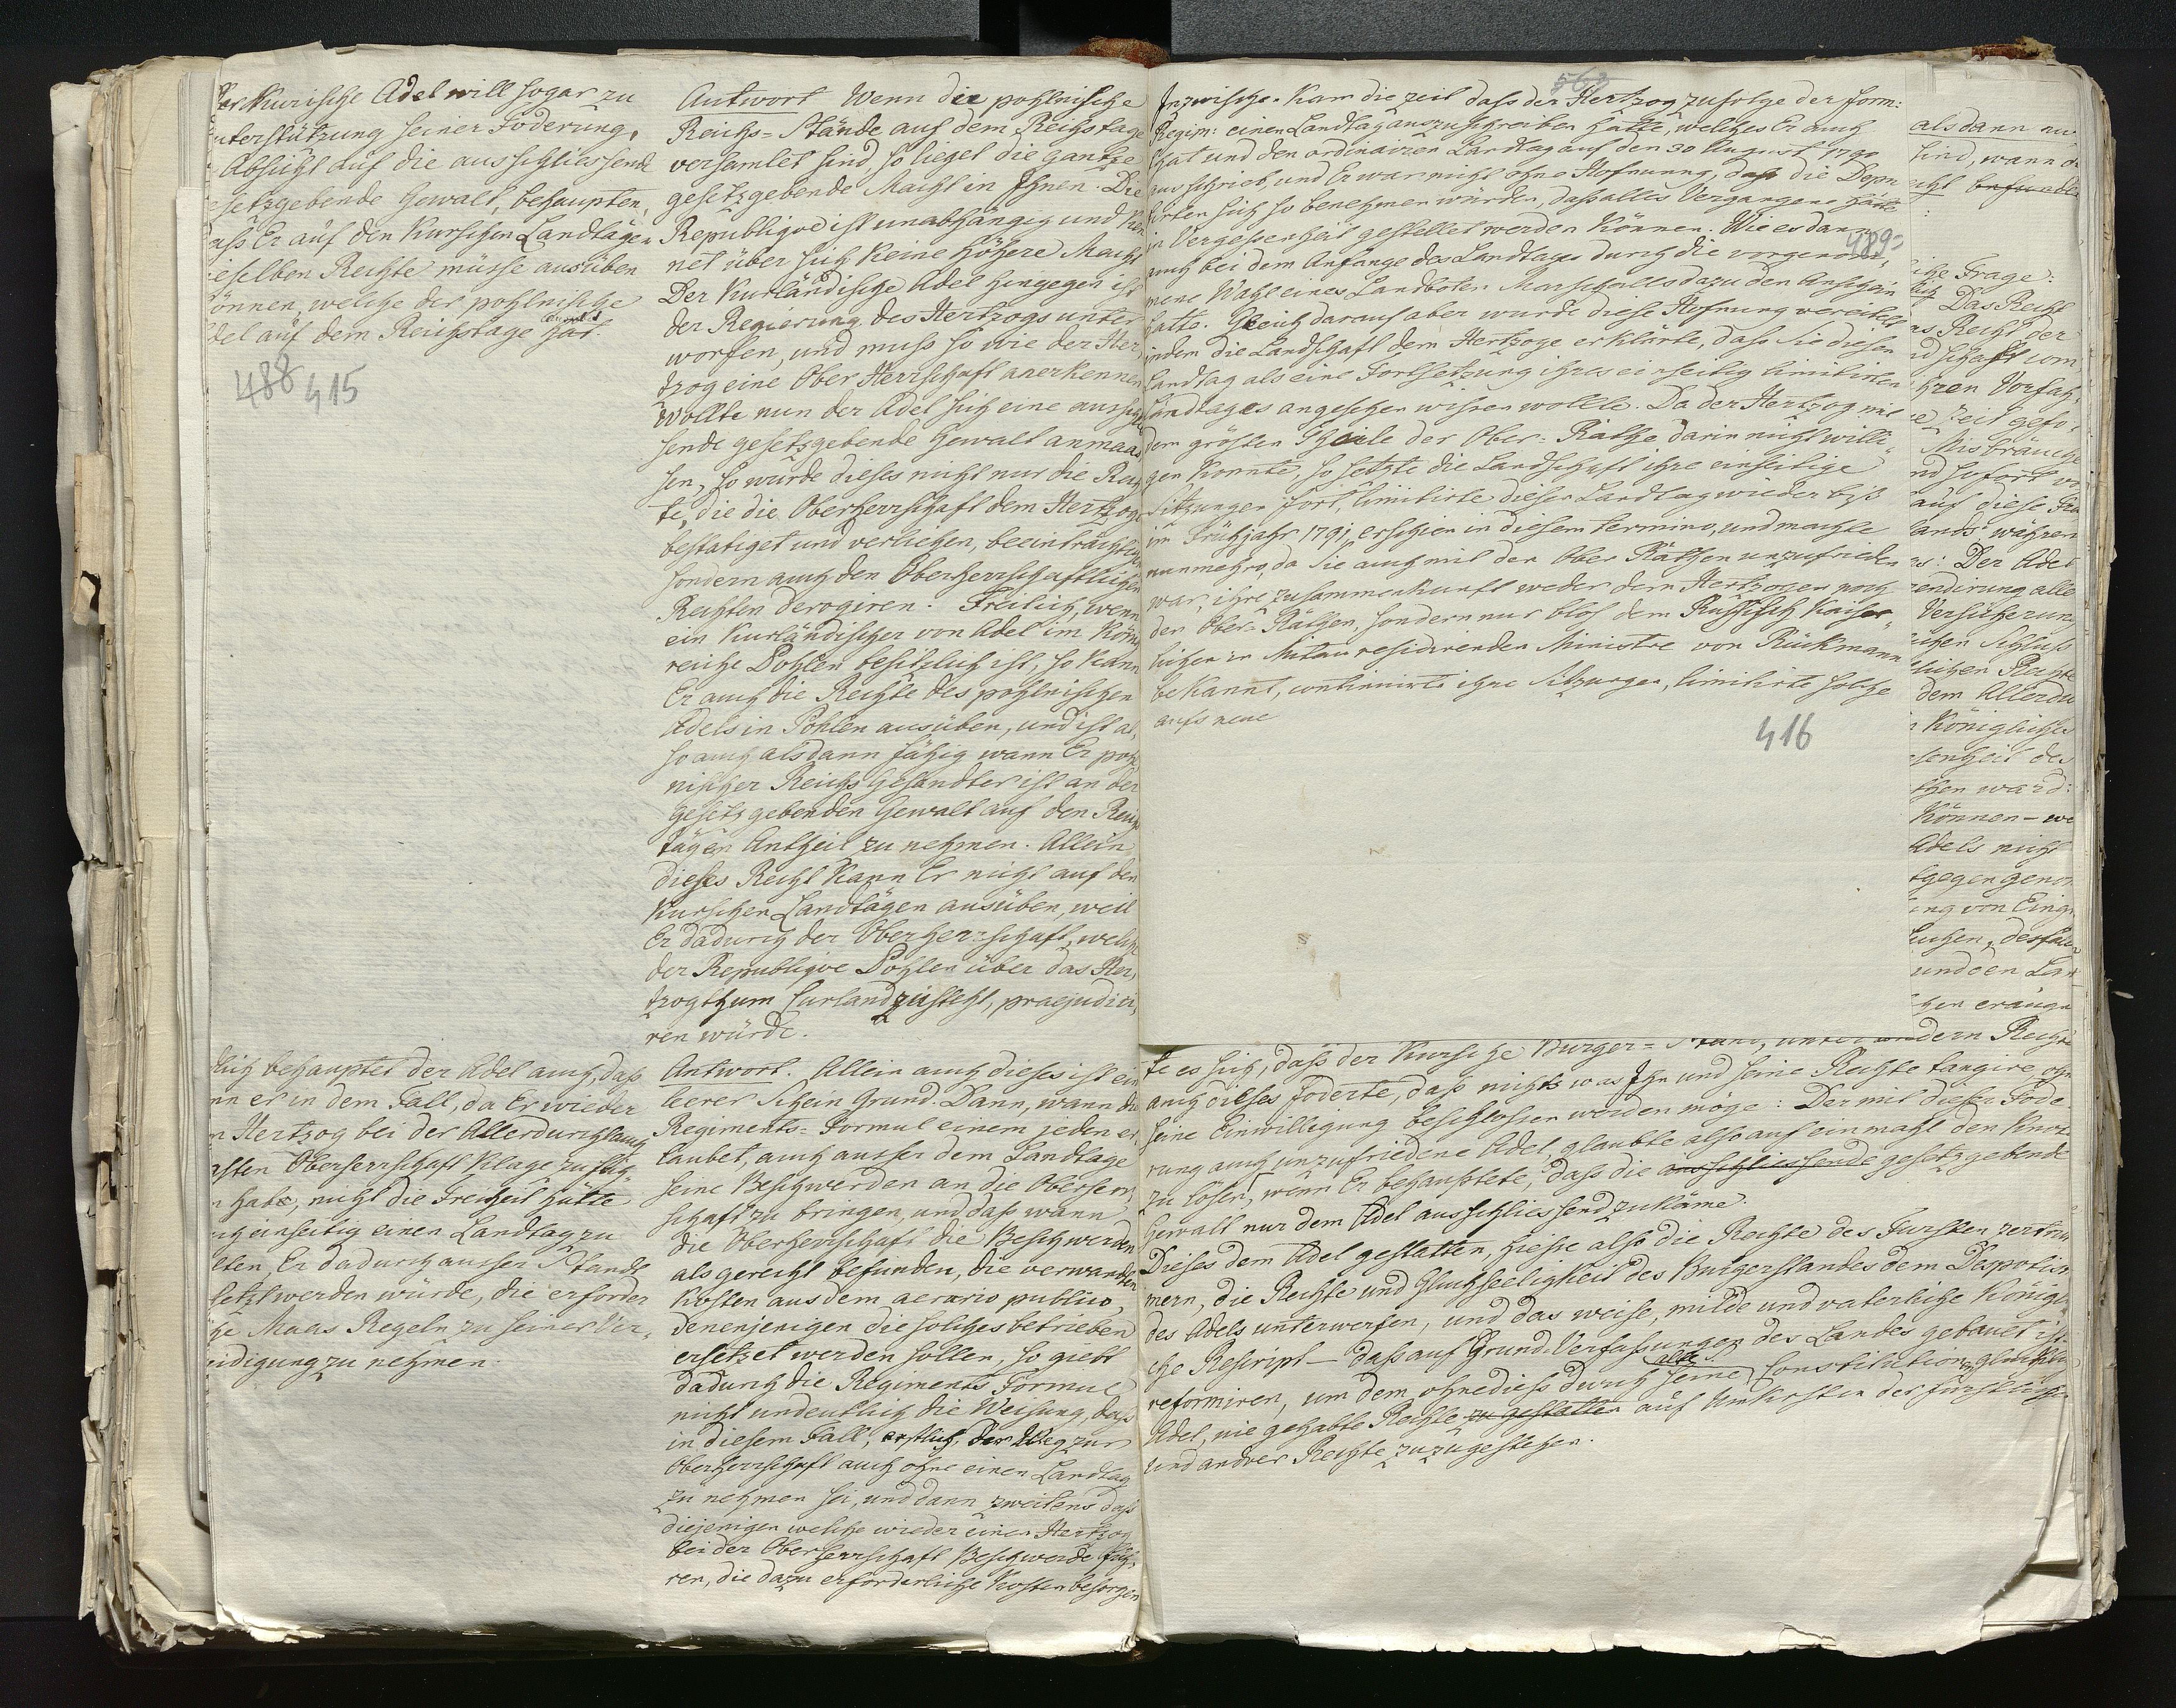 Der Kurische Adel will sogar zu
unterstützung seiner Foderung,
Absicht auf die ausschliessende
gesetzgebende Gewalt, behaupten,
dass Er auf den Kurschen Landtägen
dieselben Rechte müsse ausüben
können, welche der pohlnische
Adel auf dem Reichstage hat.
488 415
lich behauptet der Adel auch, daß
nn er in dem Fall, da Er wieder
n Hertzog bei der Allerdurchlauch
gsten Oberherrschaft Klage zu füh
n habe, nicht die Freiheit hätte
ch einseitig einen Landtag zu
lten, Er dadurch ausser Stande
setzt werden würde, die erforder
che Maas Regeln zu seiner Ver,
eidigung zu nehmen.
Antwort Wenn die pohlnische
Reichs=Stände auf dem Reichstage
versamlet sind, so lieget die gantze
gesetzgebende Macht in Ihnen. Die
Republique ist unabhängig und ken
net über sich keine höhere Macht
Der Kurländische Adel hingegen ist
der Regierung des Hertzogs unter
worfen, und muß so wie der Her
tzog eine Ober Herrschaft anerkennen
Wollte nun der Adel sich eine ausschlie
sende gesetzgebende Gewalt anmaas
sen, so würde dieses nicht nur die Rech
te, die die Oberherrschaft dem Hertzoge
bestätiget und verliehen, beeinträchtigen
sondern auch den Oberherrschaftlichen
Rechten derogiren. Freilich, wenn
ein Kurländischer von Adel im König
reiche Pohlen besitzlich ist, so kann
Er auch die Rechte des pohlnischen
Adels in Pohlen ausüben, und ist al,
so auch alsdann fähig wann Er pohl
nischer Reichs Gesandter ist an der
Gesetzgebenden Gewalt auf den Reichs
tägen Antheil zu nehmen. Allein
dieses Recht kann Er nicht auf den
Kurschen Landtägen ausüben, weil
Er dadurch der Oberherrschaft, welche
der Republique Pohlen über das Her,
tzogthum Curland zusteht, praejudici,
ren würde.
Antwort. Allein auch dieses ist ein
leerer Schein Grund. Dann, wann die
Regiments=Formul einem jeden er,
laubet, auch ausser dem Landtage
seine Beschwerden an die Oberherr
schaft zu bringen, und daß wann
die Oberherrschaft die Beschwerden
als gerecht befunden, die verwandten
Kosten aus dem aerario publico,
denenjenigen die solches betrieben
ersetzet werden sollen, so giebt
dadurch die Regiments Formul
nicht undeutlich die Weisung, daß
in diesem Fall, erstlich, der Weg zur
Oberherrschaft auch ohne einen Landtag
zu nehmen sei, und dann zweitens daß
diejenigen welche wieder einen Hertzog
bei der Oberherrschaft Beschwerde füh,
ren, die dazu erforderliche Kosten besorgen
563
Inzwischen kam die zeit daß der Hertzog zufolge der form:
Regim: einen Landtag auszuschreiben hatte, welches Er auch
that und den ordinairen Landtag auf den 30 August 1790
ausschrieb, und Er war nicht ohne Hofnung, daß die Depu
tirten sich so benehmen würden, daß alles Vergangene hätte
in Vergessenheit gestellet werden können. Wie es dann
489
auch bei dem Anfange des Landtages durch die vorgenom,
mene Wahl eines Landboten Marschalls dazu den Anschein
hatte. Gleich darauf aber wurde diese Hofnung vereitelt
indem die Landschaft dem Hertzoge erklärte, daß Sie diesen
Landtag als eine Fortsetzung ihres einseitig limitirten
Landtages angesehen wissen wollte. Da der Hertzog mit
dem größten Theile der Ober=Räthe darin nicht willi,
gen konnte, so setzte die Landschaft ihre einseitige
Sitzungen fort, limitirte diesen Landtag wieder biß
im Frühjahr 1791, erschien in diesem termino, und machte
nunmehro, da Sie auch mit den Ober Räthen unzufrieden
war, ihre zusammenkunft weder dem Hertzogen noch
den Ober=Räthen, sondern nur blos dem Russisch Kaiser,
lichen in Mitau residirenden Ministre von Rückmann
bekannt, continuirte ihre Sitzungen, limitirte solche
aufs neue
416
te es sich, daß der Kursche Bürger=Stand, unter andern Rechten
auch dieses foderte, daß nichts was Ihn und seine Rechte tangire, ohne
seine Einwilligung beschlossen werden möge: Der mit dieser Fode,
rung auch unzufriedene Adel, glaubte also auf einmahl den Knot
zu lösen, wenn Er behauptete, daß die ausschliessende gesetzgebende
Gewalt nur dem Adel ausschliessend zukäme.
Dieses dem Adel gestatten, hiesse also die Rechte des Fürsten zertrüm
mern, die Rechte und Glückseeligkeit des Bürgerstandes dem Despotism
des Adels unterwerfen, und das weise, milde und väterliche Königli
che Rescript — daß auf Grund Verfassungen des Landes gebauet ist
reformiren, um dem, ohnedieß durch seine alte Constitution glücklichen
Adel, nie gehabte Rechte zu gestatten auf Unkosten der fürstlichen
und andrer Rechte zuzugestehen.
alsdann nu
sind, wann d
cht befunden
iche Frage:
Das Recht
as Recht der
dschaft vom
hren Vorfah,
e Zeit gefo,
Misbräuche
nd sofort vo
auf diese Fra
lands währen
es: Der Adel
endirung alle
Versicherun
ichen Schluß
lichen Rechte
dem Allerdu
n Königliches
senheit des
then ward:
Können — we
Adels nicht
tgegen genom
ung von Eing
suchen, desfals
und den Lan
hen eräugn